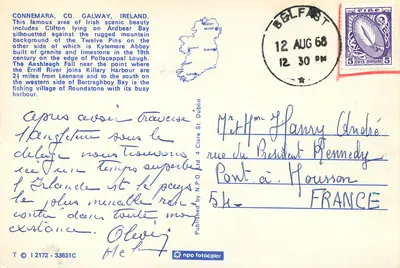 CONNEMARA, CO. GALWAY, IRELAND.
This famous area of Irish scenic beauty
includes Clifton lying on Ardbear Bay
silhouetted against the rugged mountain
background of the Twelve Pins on the
other side of which is Kylemore Abbey
built of granite and limestone in the 19th
century on the edge of Pollacapaul Lough.
The Aashleagh Fall near the point where
the Erriff River joins Killary Harbour are
2½ miles from Leenane and to the south on
the western side of Bertraghboy Bay is the
fishing village of Roundstone with its busy
harbour.
BELFAST
12 AUG 68
12. 30 PM
Après avoir traversé
l'Angleterre sous le
déluge nous trouvons
ici un temps superbe
L'Irlande est le pays
le plus
dans toute mon
existance. Olivier
Published by N.P.O. Ltd 4 Clare St. Dublin
Mr et Mme Hanry André
rue du Président Kennedy
Pont à Mousson
54
FRANCE
T © I 2172 - 33631C
npo fotocolor